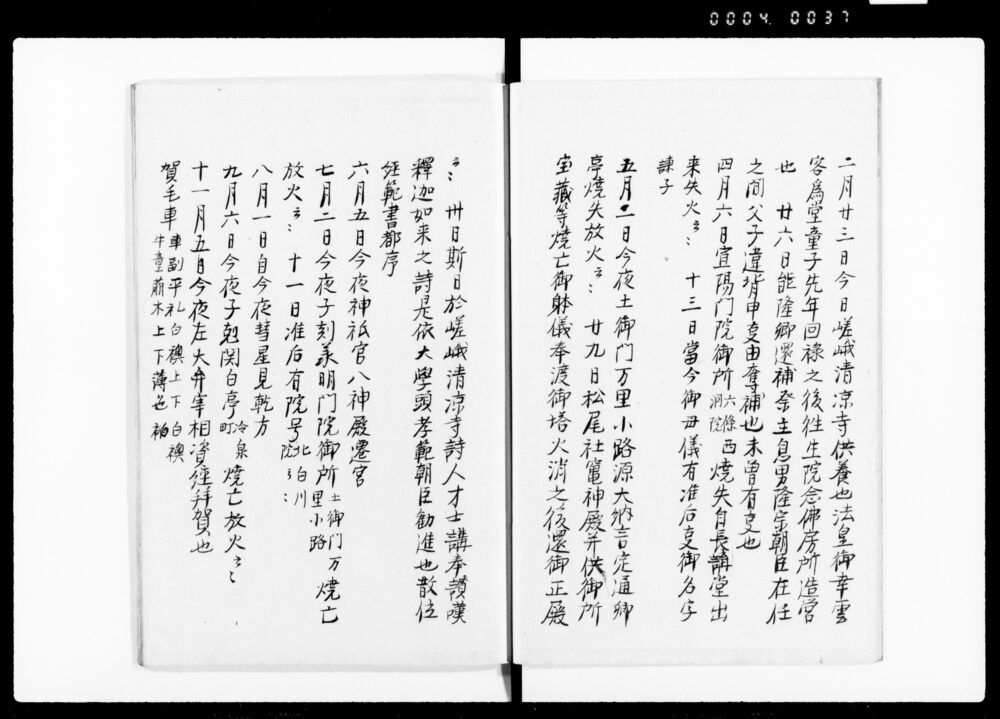 0004 0037
二月廿三日今日嵯峨清凉寺供養也法皇御幸雲
客為堂童子先年回禄之後往生院念佛房所造営
也 廿六日能隆卿還補祭主息男隆宗朝臣在任
之間父子違背申变由奪補也未曽有变也
四月六日宣陽門院御所六條洞院西焼失自長講堂出
来失火云〻 十三日當今御母儀有准后变御名字
諌子
五月二日今夜土御門万里小路源大納言定通卿
亭焼失放火云〻 廿九日松尾社竃神殿并供御所
宝蔵等焼亡御躰儀奉渡御塔火消之後還御正殿
云〻 卅日斯日於嵯峨清凉寺詩人才士講奉讃嘆
釋迦如来之詩是依大學頭孝範朝臣勧進也散位
経範書都序
六月五日今夜神祇官八神殿遷宮
七月二日今夜子刻承明門院御所土御門万里小路焼亡
放火云〻 十一日准后有院号北白川院云〻
八月一日自今夜彗星見乾方
九月六日今夜子剋関白亭冷泉町焼亡放火云〻
十一月五日今夜左大弁宰相資經拜賀也
賀毛車車副平礼白襖上下白襖牛童蘇木上下薄色袙